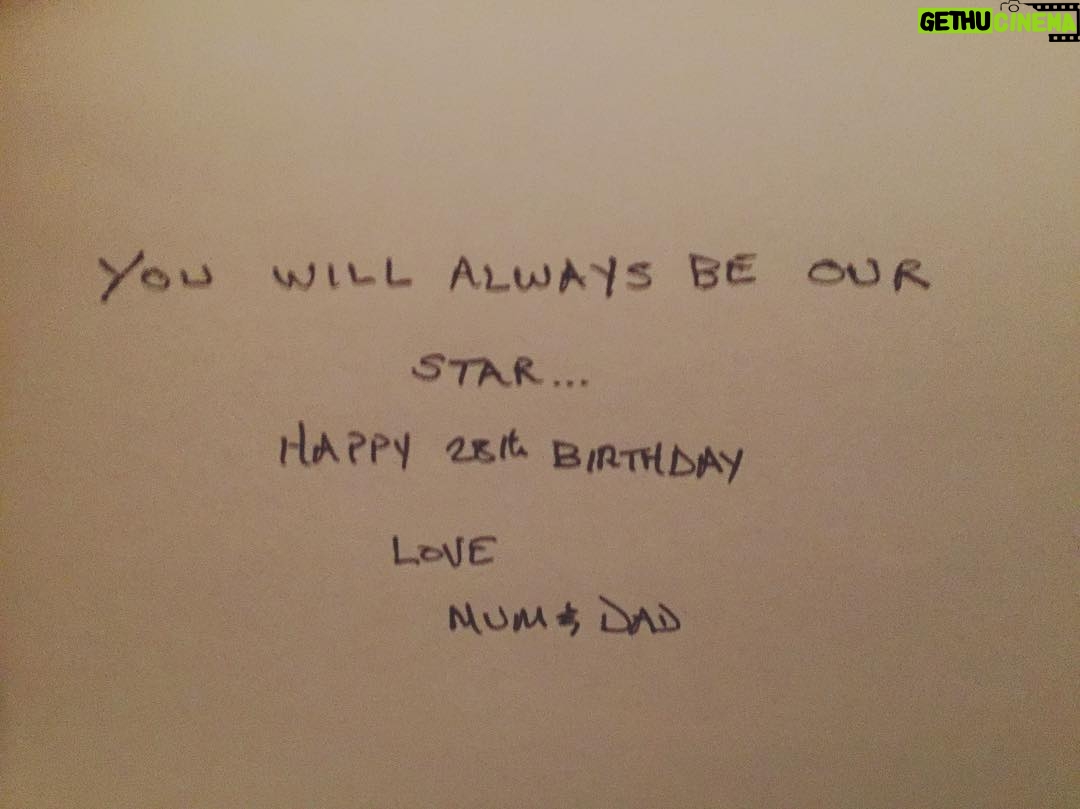 GETHUCINEMA
YOU WILL ALWAYS BE OUR
STAR...
HAPPY 28th BIRTHDAY
LOVE
MUM & DAD